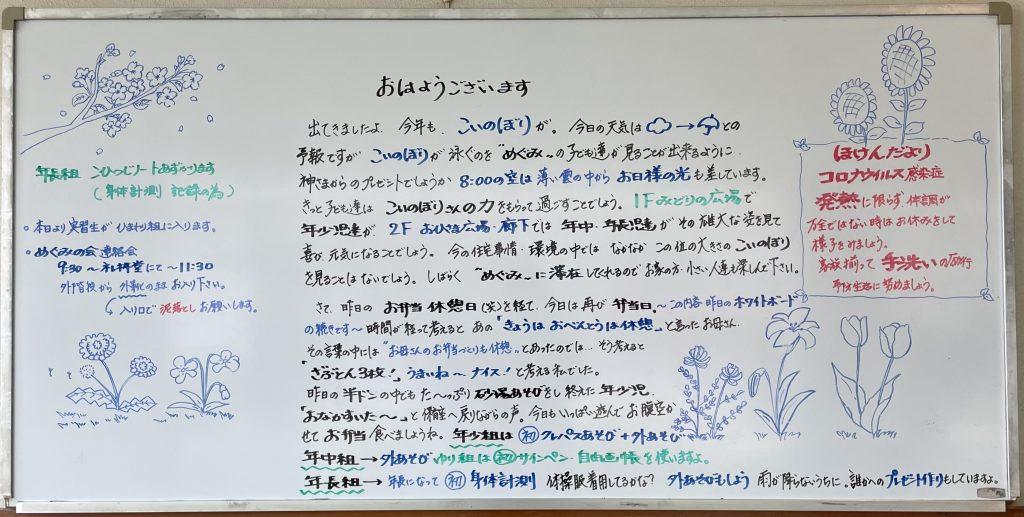 おはようございます
出てきましたよ 今年も、こいのぼりが。今日の天気は → との
予報ですが こいのぼりが 泳ぐのを "めぐみ〜の子ども達が見ることが出来るように
神さまからのプレゼントでしょうか 8:00の空は 薄い雲の中から お日様の光も差しています。
きっと子ども達は こいのぼりさんの力をもらって過ごすことでしょう。1Fみどりの広場で
年少児達が 2Fおひさま広場・廊下では 年中・年長児達が その雄大な姿を見て
喜び、元気になることでしょう。今の住宅事情・環境の中では なかなか この位の大きさのこいのぼり
を見ることはないでしょう。しばらく "めぐみ〜に滞在してくれるのでお家の方・小さい人達も楽しんで下さい。
さて、昨日の お弁当休憩日(笑)を経て、今日は再び 弁当日。〜この内容 昨日のホワイトボード
の続きです〜 時間が経って考えると あの「きょうは おべんとうは休憩」と言ったお母さん
その言葉の中には "お母さんのお弁当づくりも休憩〟とあったのでは… そう考えると
"ざぶとん3枚!" うまいね〜 ナイス! と考える私でした。
昨日の半ドンの中でも た〜っぷり 砂場あそびをし終えた 年少児
「おなかすいた〜」と 保育室へ戻りながらの声。今日もいっぱい遊んで お腹空か
せて お弁当食べましょうね。年少組は 初 クレパスあそび+外あそび
年中組→外あそび ゆり組は初サインペン・自由画帳を使いますよ。
年長組→年長になって 初 身体計測 体操服着用してるかな? 外あそびもしよう 雨が降らないうちに。誰かへのプレゼント作りもしていますよ。
年長組 こひつじノートあずかります
(身体計測 記録の為)
○ 本日より実習生が ひまわり組に入ります。
○ めぐみの会 連絡会
9:30〜礼拝堂にて〜11:30
外階段から 外靴のまま お入り下さい。
入り口で 泥落とし お願いします。
ほけんだより
コロナウイルス感染症
発熱に限らず、体調が
万全ではない時はお休みをして
様子をみましょう。
家族揃って 手洗いの励行
予防生活に努めましょう。